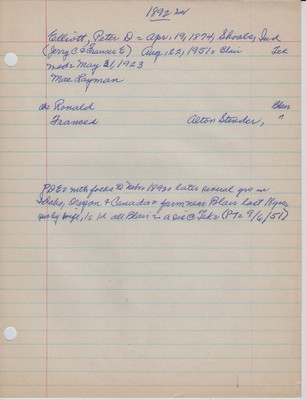 1892 nr
Elliott, Peter D = Apr. 19, 1874, Shoals, Ind
(Jerry C & Frances E) Aug. 22, 1951 = Blair Tek
med = May 31, 1923
Mae Layman
ch: Ronald Blair
Frances Alton Strader, "
PDE = with folks to Nebr 1890s later several yrs in
Idaho, Oregon & Canada = farm near Blair last 19 yrs
survd by wife, 1s 1d all Blair = a sis @ Tek = (PT = 9/6/51)